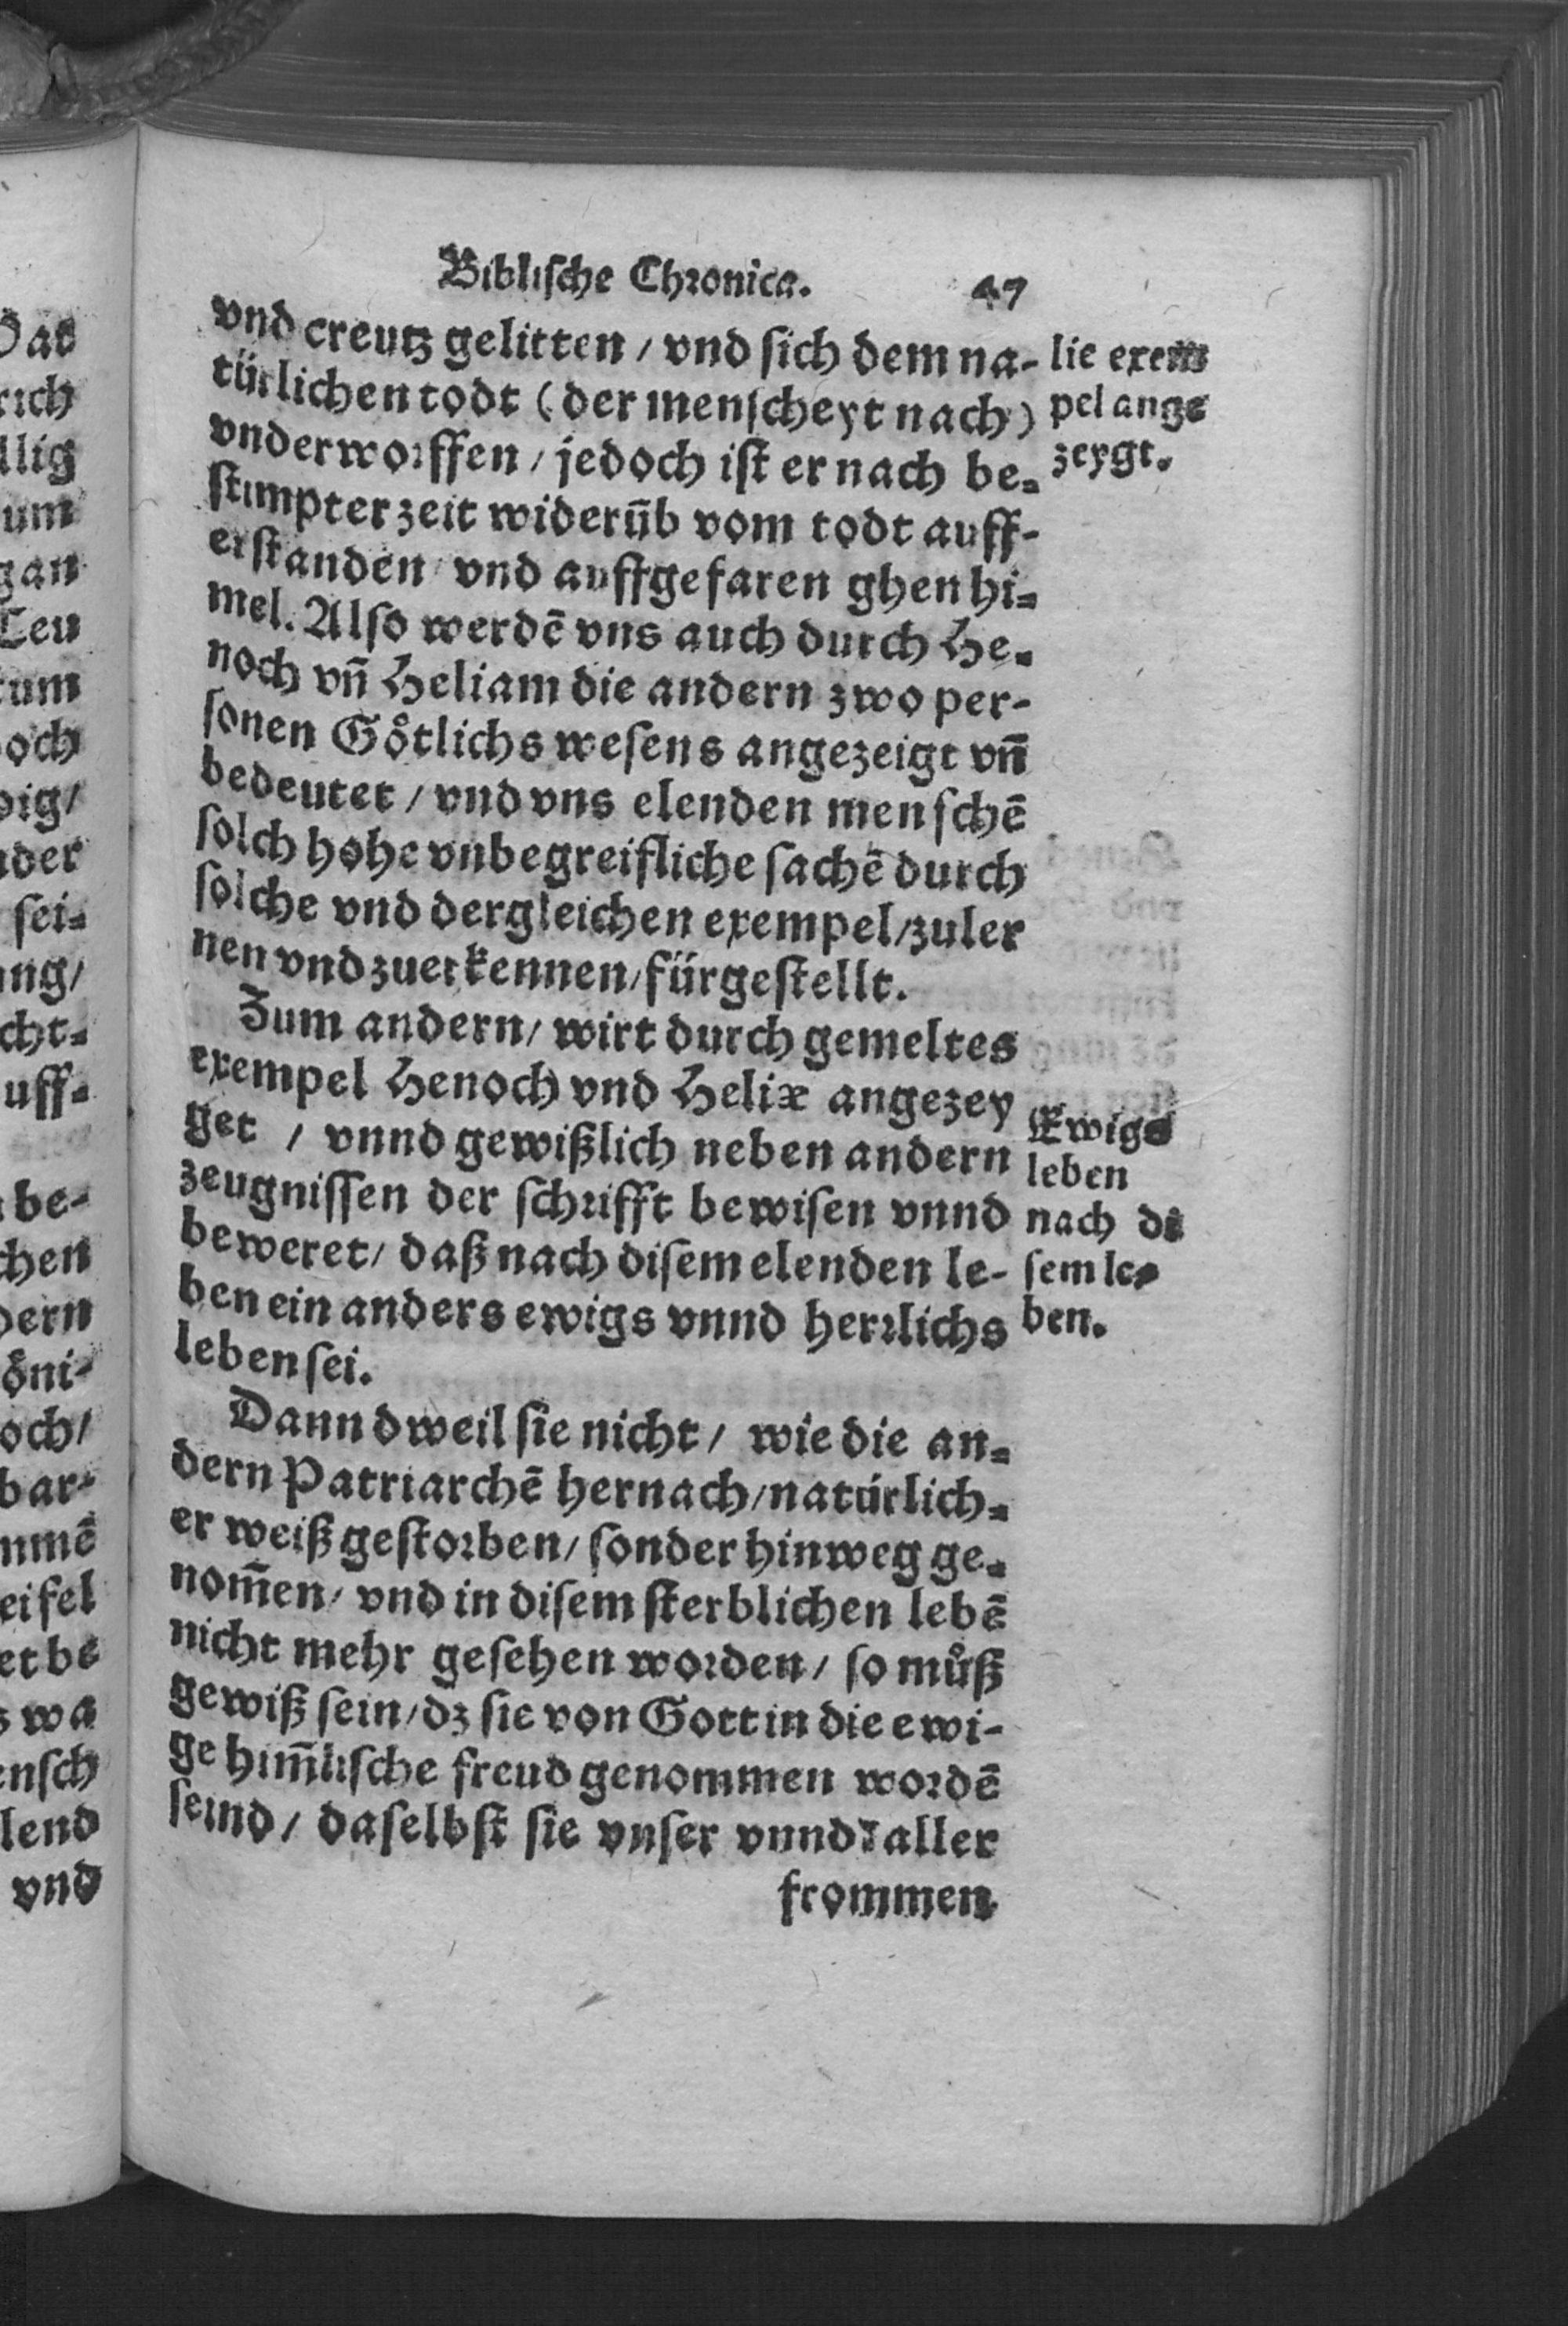 Biblische Chronica. 47
vnd creutz gelitten / vnd sich dem na-
türlichen todt (der menscheyt nach)
vnderworffen / jedoch ist er nach be-
stimpter zeit widerüb vom todt auff-
erstanden vnd auffgefaren ghen hi-
mel. Also werdē vns auch durch He-
noch vn̄ Heliam die andern zwo per-
sonen Goͤtlichs wesens angezeigt vn̄
bedeutet / vnd vns elenden menschē
solch hohe vnbegreifliche sachē durch
solche vnd dergleichen exempel / zuler
nen vnd zuerkennen / fürgestellt.
Zum andern / wirt durch gemeltes
exempel Henoch vnd Heliæ angezey
get / vnnd gewißlich neben andern
zeugnissen der schrifft bewisen vnnd
beweret / daß nach disem elenden le-
ben ein anders ewigs vnnd herrlichs
leben sei.
Dann dweil sie nicht / wie die an-
dern Patriarchē hernach / natürlich-
er weiß gestorben / sonder hinweg ge-
nom̄en / vnd in disem sterblichen lebē
nicht mehr gesehen worden / so můß
gewiß sein / dz sie von Gott in die ewi-
ge him̄lische freud genommen wordē
seind / daselbst sie vnser vnnd aller
frommen
lie exem
pel ange
zeygt.
Ewigs
leben
nach di
sem le-
ben.